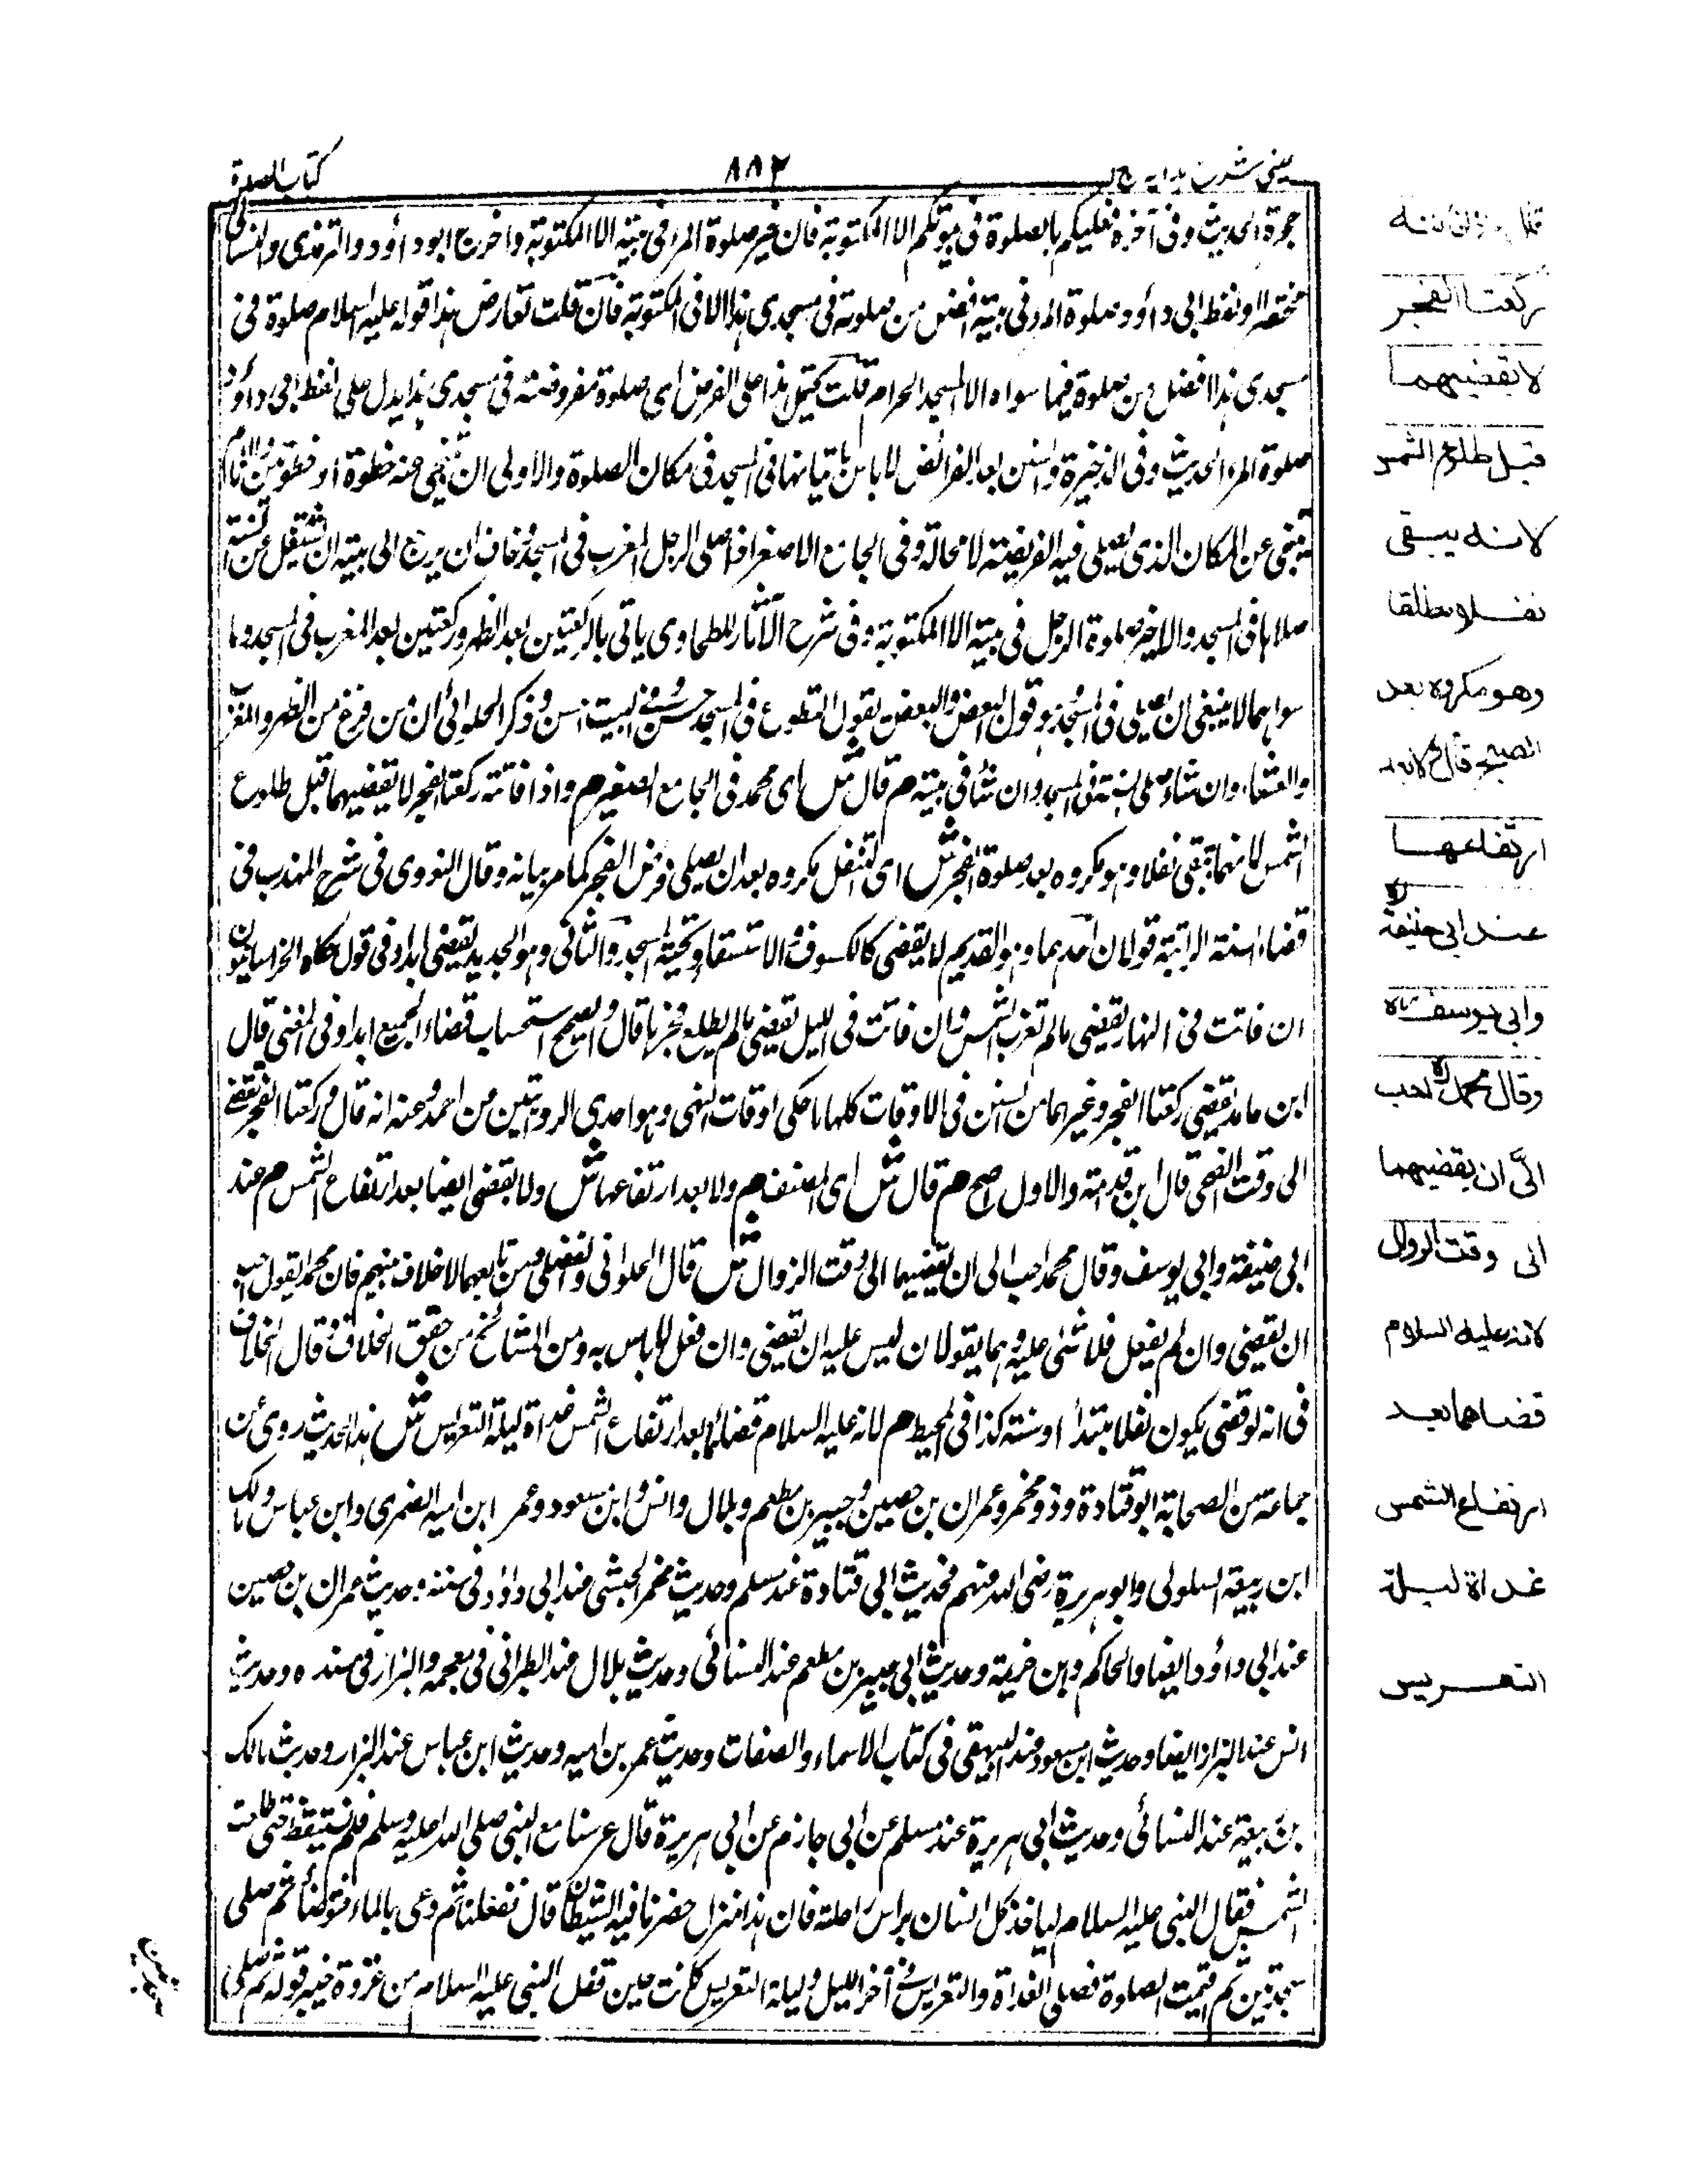 عيني شرح هدايه ج ١
٨٨٢
كتاب الصلوة
حجرة الحديث وفي آخره فعليكم بالصلوة في بيوتكم الا المكتوبة فان خير صلوة المرء في بيته الا المكتوبة واخرج ابو داؤد والترمذي والنسائي
مختصرا ولفظ ابي داؤد صلوة المرء في بيته افضل من صلوته في مسجدي هذا الا في المكتوبة فان قلت تعارض هذا قوله عليه السلام صلوة في
مسجدي هذا افضل من صلوة فيما سواه الا المسجد الحرام قلت يحتمل هذا على الفرض اي صلوة مفروضة في مسجدي هذا يدل على لفظ ابي داؤد
صلوة المرء الحديث وفي الذخيرة والسنن بعد الفرائض لا باس باتيانها في المسجد في مكان الصلوة والاولى ان يتنحى عنه خطوة او خطوتين والامام
يتنحى عن المكان الذي يصلي فيه الفريضة لا محالة وفي الجامع الاصغر اذا صلى الرجل المغرب في المسجد وخاف ان يرجع الى بيته ان يشتغل عن السنة
صلاها في المسجد والا خير صلوة الرجل في بيته الا المكتوبة وفي شرح الآثار للطحاوي ياتي بالركعتين بعد الظهر وركعتين بعد المغرب في المسجد وما
سواهما لا ينبغي ان يصلي في المسجد وهو قول البعض والبعض يقول التطوع في المسجد حسن وفي البيت احسن وذكر الحلوائي ان من فرغ من الظهر والمغرب
والعشاء ان شاء صلى السنة في المسجد وان شاء في بيته م قال ش اي محمد في الجامع الصغير م واذا فاتته ركعتا الفجر لا يقضيهما قبل طلوع
الشمس لانهما تبقى نفلا وهو مكروه بعد صلوة الفجر ش اي التنفل مكروه بعد ان يصلي فرض الفجر كما مر بيانه وقال النووي في شرح المهذب في
قضاء السنة الراتبة قولان احدهما وهو القديم لا يقضى كالكسوف والاستسقاء وتحية المسجد والثاني وهو الجديد يقضى ابدا وفي قول حكاه الخراسانيون
ان فاتت في النهار يقضي مالم تغرب الشمس وان فاتت في الليل يقضي مالم يطلع فجرها قال والصحيح استحباب قضاء الجميع ابدا وفي المغني قال
ابن حامد يقضي ركعتا الفجر وغيرهما من السنن في الاوقات كلها ما خلا اوقات النهي وهو احدى الروايتين من احمد وعنه انه قال وركعتا الفجر تقضى
الى وقت الضحى قال ابن قدامة والاول اصح م قال ش اي المصنف م ولا بعد ارتفاعها ش ولا يقضى ايضا بعد ارتفاع الشمس م عند
ابي حنيفة وابي يوسف وقال محمد احب الي ان يقضيهما الى وقت الزوال ش قال الحلواني والفضلي ومن تابعهما لا خلاف بينهم فان محمدا يقول احب
ان يقضي وان لم يفعل فلا شئ عليه وهما يقولان ليس عليه ان يقضي وان فعل لا باس به ومن المشائخ من حقق الخلاف وقال الخلاف
في انه لو قضى يكون نفلا مبتدأ او سنة كذا في المحيط م لانه عليه السلام قضاهما بعد ارتفاع الشمس غداة ليلة التعريس ش هذا الحديث روي عن
جماعة من الصحابة ابو قتادة وذو مخمر وعمران بن حصين وجبير بن مطعم وبلال وانس وابن مسعود وعمر ابن اميه الضمري وابن عباس ومالك
ابن ربيعة السلولي وابو هريرة رضي الله عنهم فحديث ابي قتادة عند مسلم وحديث مخمر الحبشي عند ابي داؤد في سننه وحديث عمران بن حصين
عند ابي داؤد ايضا والحاكم وابن خزيمة وحديث ابي جبير بن مطعم عند النسائي وحديث بلال عند الطبراني في معجمه والبزار في مسنده وحديث
انس عند البزار ايضا وحديث ابن مسعود عند البيهقي في كتاب الاسماء والصفات وحديث عمر بن اميه وحديث ابن عباس عند البزار وحديث مالك
بن ربيعة عند النسائي وحديث ابي هريرة عند مسلم عن ابي حازم عن ابي هريرة قال عرسنا مع النبي صلى الله عليه وسلم فلم نستيقظ حتى طلعت
الشمس فقال النبي عليه السلام لياخذ كل انسان براس راحلته فان هذا منزل حضرنا فيه الشيطان قال ففعلنا ثم دعى بالماء فتوضأ ثم صلى
سجدتين ثم اقيمت الصلوة فصلى الغداة والتعريس في آخر الليل وليلة التعريس كانت حين قفل النبي عليه السلام من غزوة خيبر قوله ثم صلى
ركعتا الفجر
لا يقضيهما
قبل طلوع الشمس
لانه يبقى
نفلا مطلقا
وهو مكروه بعد
الصبح قال ولا بعد
ارتفاعها
عند ابي حنيفة
وابي يوسف
وقال محمد احب
الي ان يقضيهما
الى وقت الزوال
لانه عليه السلام
قضاهما بعد
ارتفاع الشمس
غداة ليلة
التعريس